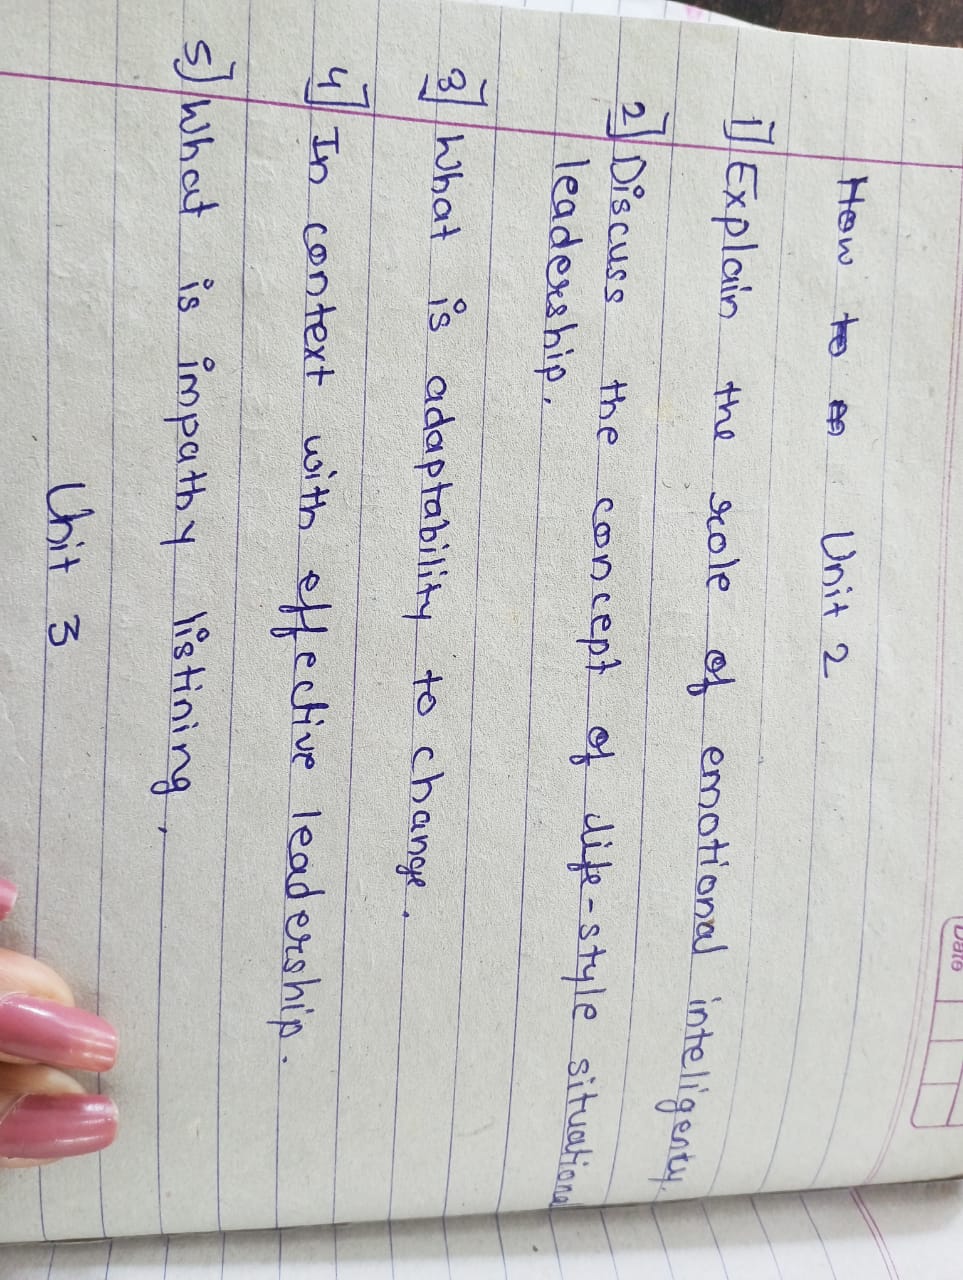 Date
How to m Unit 2
1] Explain the role of emotional inteligenty.
2] Discuss the concept of life-style situational
leadership.
3] What is adaptability to change.
4] In context with effective leadership.
5] What is impathy listining,
Unit 3